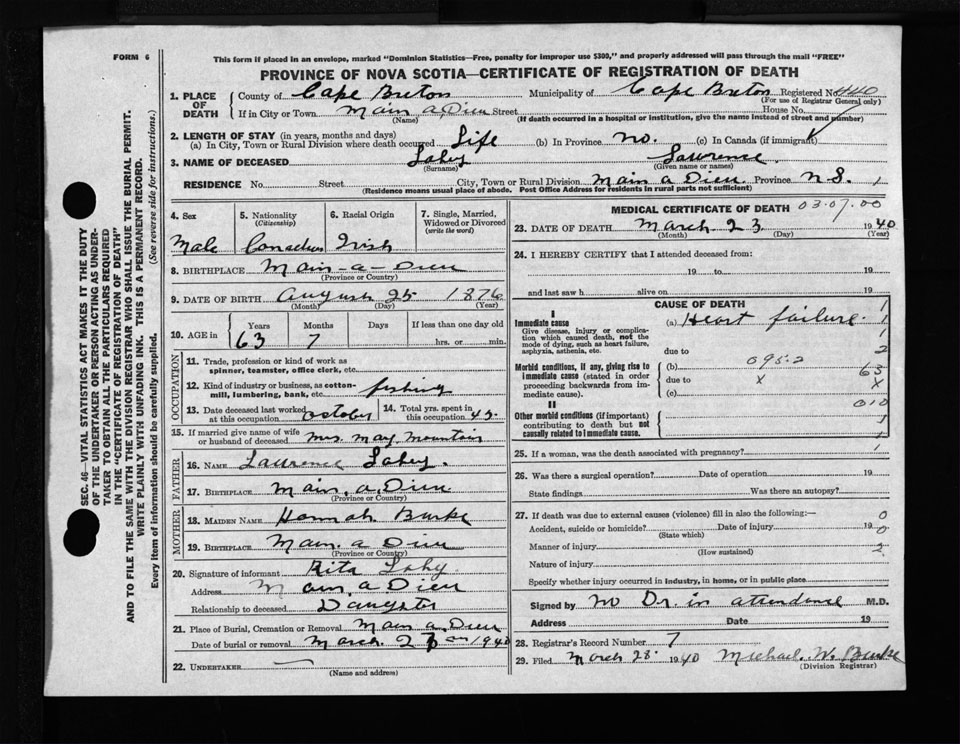 FORM 6
This form if placed in an envelope, marked "Dominion Statistics—Free, penalty for improper use $300," and properly addressed will pass through the mail "FREE"
PROVINCE OF NOVA SCOTIA—CERTIFICATE OF REGISTRATION OF DEATH
SEC. 46—VITAL STATISTICS ACT MAKES IT THE DUTY
OF THE UNDERTAKER OR PERSON ACTING AS UNDER-
TAKER TO OBTAIN ALL THE PARTICULARS REQUIRED
IN THE "CERTIFICATE OF REGISTRATION OF DEATH"
AND TO FILE THE SAME WITH THE DIVISION REGISTRAR WHO SHALL ISSUE THE BURIAL PERMIT.
WRITE PLAINLY WITH UNFADING INK. THIS IS A PERMANENT RECORD.
Every item of information should be carefully supplied. (See reverse side for instructions.)
1. PLACE OF DEATH County of Cape Breton Municipality of Cape Breton Registered No. 440
(For use of Registrar General only)
If in City or Town Main a Dieu Street House No.
(Name) (If death occurred in a hospital or institution, give the name instead of street and number)
2. LENGTH OF STAY (in years, months and days)
(a) In City, Town or Rural Division where death occurred Life (b) In Province no. (c) In Canada (if immigrant)
3. NAME OF DECEASED Lahey Lawrence.
(Surname) (Given name or names)
RESIDENCE No. Street City, Town or Rural Division Main a Dieu Province N S. 1
(Residence means usual place of abode. Post Office Address for residents in rural parts not sufficient)
4. Sex 5. Nationality (Citizenship) 6. Racial Origin 7. Single, Married, Widowed or Divorced (write the word)
Male Canadian Irish
8. BIRTHPLACE Main-a-Dieu
(Province or Country)
9. DATE OF BIRTH August 25 1876
(Month) (Day) (Year)
10. AGE in Years Months Days If less than one day old
63 7 hrs. or min.
OCCUPATION
11. Trade, profession or kind of work as
spinner, teamster, office clerk, etc.
12. Kind of industry or business, as cotton-
mill, lumbering, bank, etc. fishing
13. Date deceased last worked at this occupation October 14. Total yrs. spent in this occupation 45.
15. If married give name of wife
or husband of deceased Mrs. May Mountain
FATHER
16. NAME Lawrence Lahey.
17. BIRTHPLACE Main, a, Dieu
(Province or Country)
MOTHER
18. MAIDEN NAME Hannah Burke
19. BIRTHPLACE Main. a Dieu
(Province or Country)
20. Signature of informant Rita Lahy
Address Main, a, Dieu
Relationship to deceased Daughter
21. Place of Burial, Cremation or Removal Main a, Dieu
Date of burial or removal March 1940
22. UNDERTAKER
(Name and address)
MEDICAL CERTIFICATE OF DEATH 03.07.00
23. DATE OF DEATH March 23 1940
(Month) (Day) (Year)
24. I HEREBY CERTIFY that I attended deceased from:
19 to 19
and last saw h alive on 19
CAUSE OF DEATH
I
Immediate cause (a) Heart failure. 1
Give disease, injury or complica-
tion which caused death, not the
mode of dying, such as heart failure,
asphyxia, asthenia, etc.
due to 2
Morbid conditions, if any, giving rise to
immediate cause (stated in order
proceeding backwards from im-
mediate cause).
(b) 095.2 63
due to x X
(c) 010
II
Other morbid conditions (if important)
contributing to death but not
causally related to immediate cause.
25. If a woman, was the death associated with pregnancy? 1
26. Was there a surgical operation? Date of operation 19
State findings Was there an autopsy?
27. If death was due to external causes (violence) fill in also the following:— 0
Accident, suicide or homicide? Date of injury 19 0
(State which)
Manner of injury 2
(How sustained)
Nature of injury
Specify whether injury occurred in industry, in home, or in public place
Signed by No Dr. in attendance M.D.
Address Date 19
28. Registrar's Record Number 7
29. Filed March 28. 1940 Michael. W. Burke
(Division Registrar)